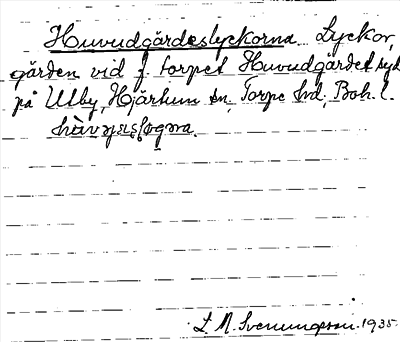 Huvudgärdeslyckorna. Lyckor,
gärden vid f. torpet Huvudgärdet syd
på Utby, Hjärtum sn, Torpe hd, Boh. l.
L. M. Svenungsson. 1935.